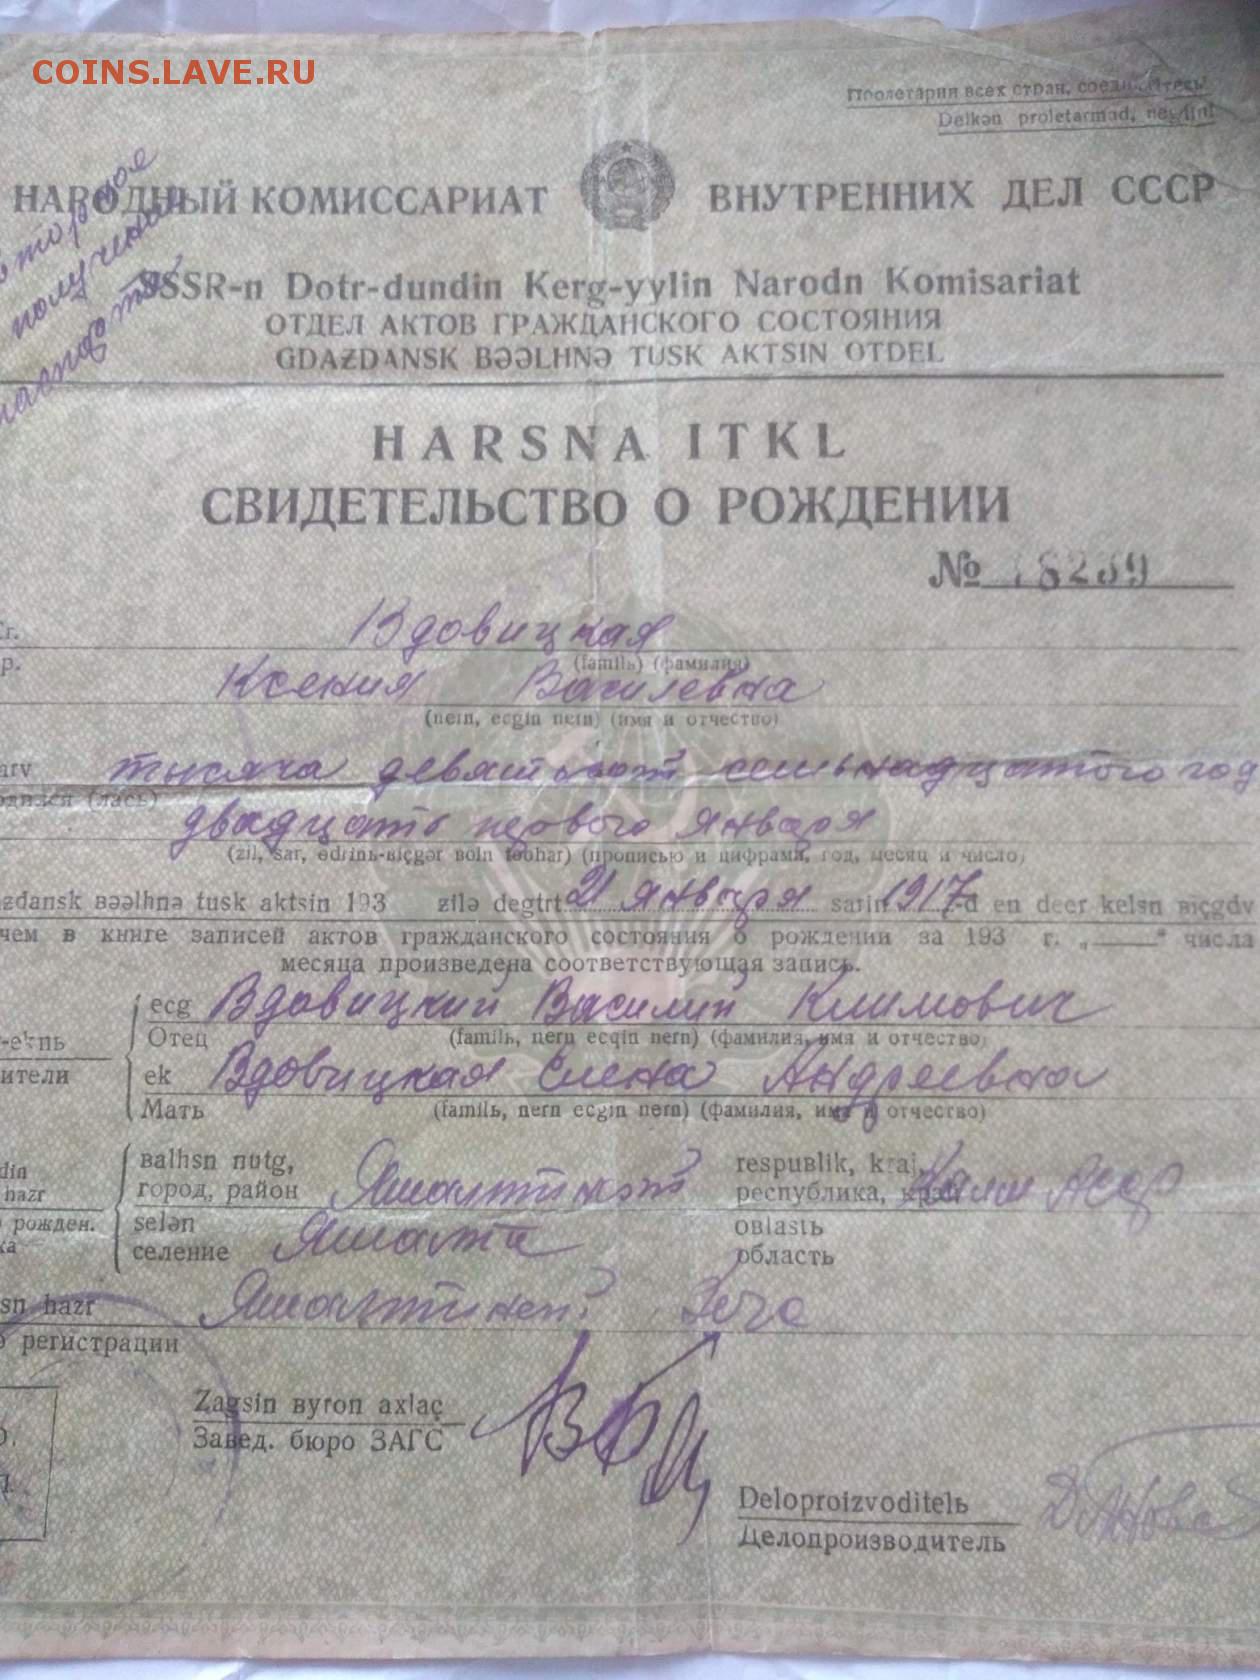 COINS.LAVE.RU
Пролетарии всех стран, соединяйтесь!
Delkən proletarmud, negdjn!
НАРОДНЫЙ КОМИССАРИАТ ВНУТРЕННИХ ДЕЛ СССР
SSSR-n Dotr-dundin Kerg-yylin Narodn Komisariat
ОТДЕЛ АКТОВ ГРАЖДАНСКОГО СОСТОЯНИЯ
GDAƵDANSK BƏƏLHNƏ TUSK AKTSIN OTDEL
HARSNA ITKL
СВИДЕТЕЛЬСТВО О РОЖДЕНИИ
№ 18239
Вдовицкая
(familь) (фамилия)
Ксения Василевна
(nern, ecgin nern) (имя и отчество)
тысяча девятьсот семьнадцатого год
(лась)
двадцать первого января
(zil, sar, ədrinь-biçgər boln toohar) (прописью и цифрами, год, месяц и число)
ƶdansk bəəlhnə tusk aktsin 193 zilə degtrt 21 января sarin 1917-d en deer kelsn biçgdv
чем в книге записей актов гражданского состояния о рождении за 193 г. „ “ числа
месяца произведена соответствующая запись.
ecg Вдовицкий Василий Климович
Отец (familь, nern ecgin nern) (фамилия, имя и отчество)
-eknь
ители
ek Вдовицкая Елена Андреевна
Мать (familь, nern ecgin nern) (фамилия, имя и отчество)
din
hazr
рожден.
ка
balhsn nutg,
город, район Яшалтинский
respublik, kraj,
республика, край Калм Асср
selən
селение Яшалта
oblastь
область
sn hazr Яшалтинский Загс
регистрации
Zagsin byron axlaç
Завед. бюро ЗАГС
Deloproizvoditelь
Делопроизводитель